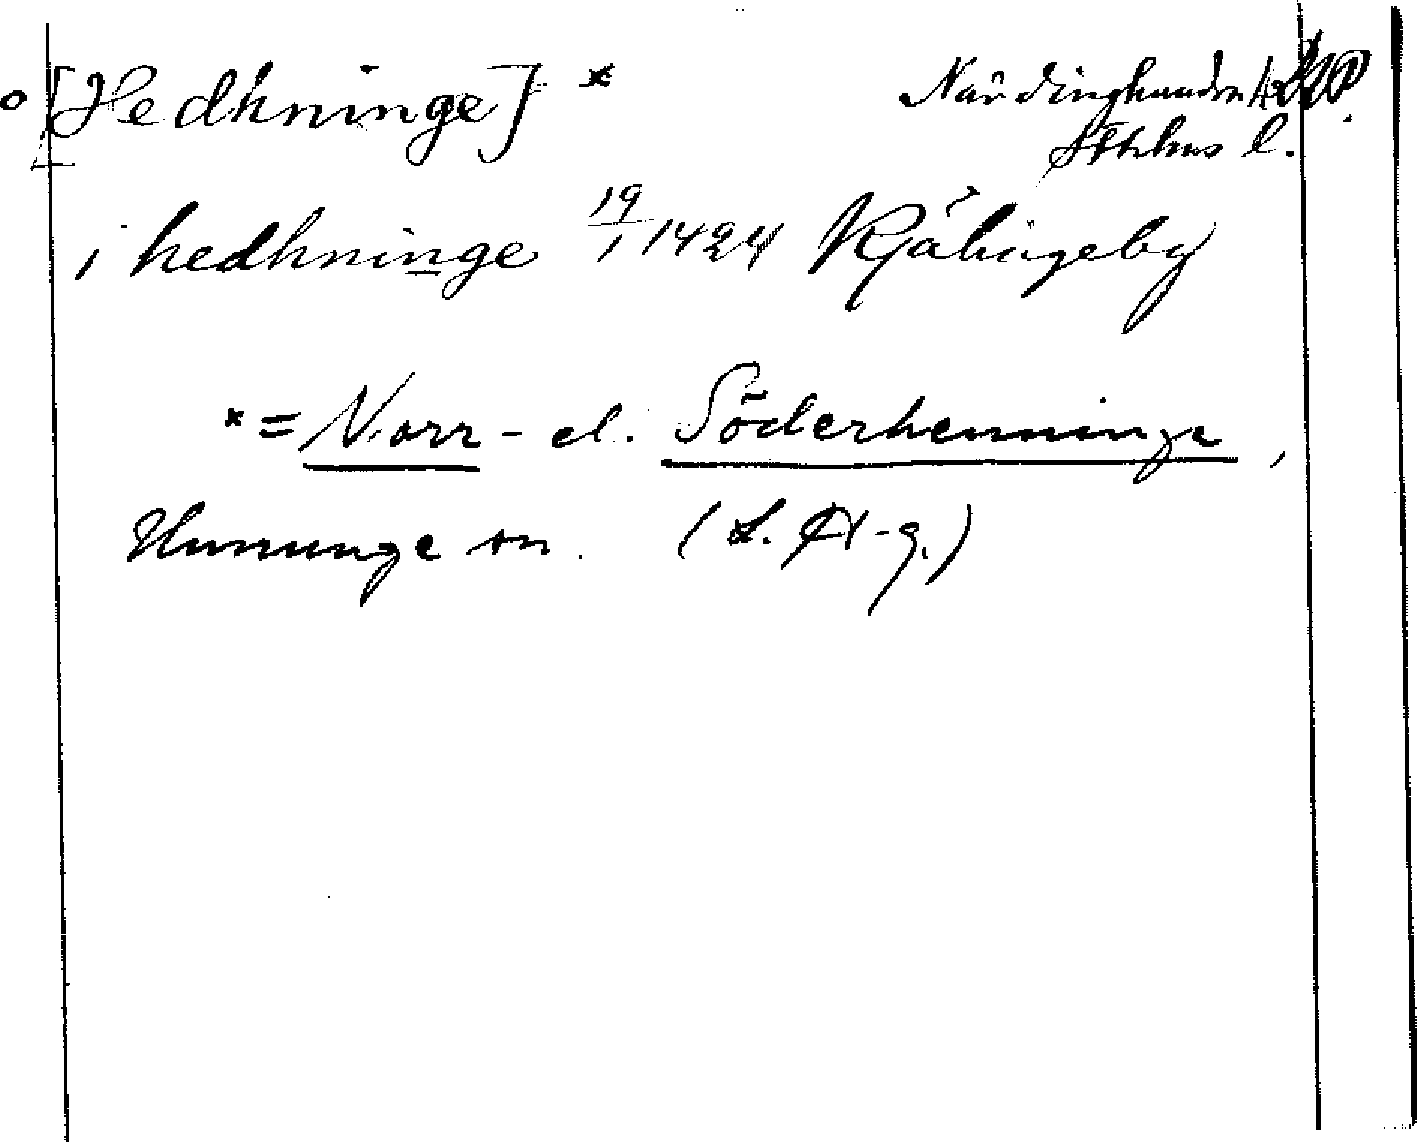 [Hedhninge] * Närdinghundra h
Sthlms l.
i hedhninge 19/1 1424
* = Norr- el. Söderhenninge,
Ununge sn. (L. H-g.)